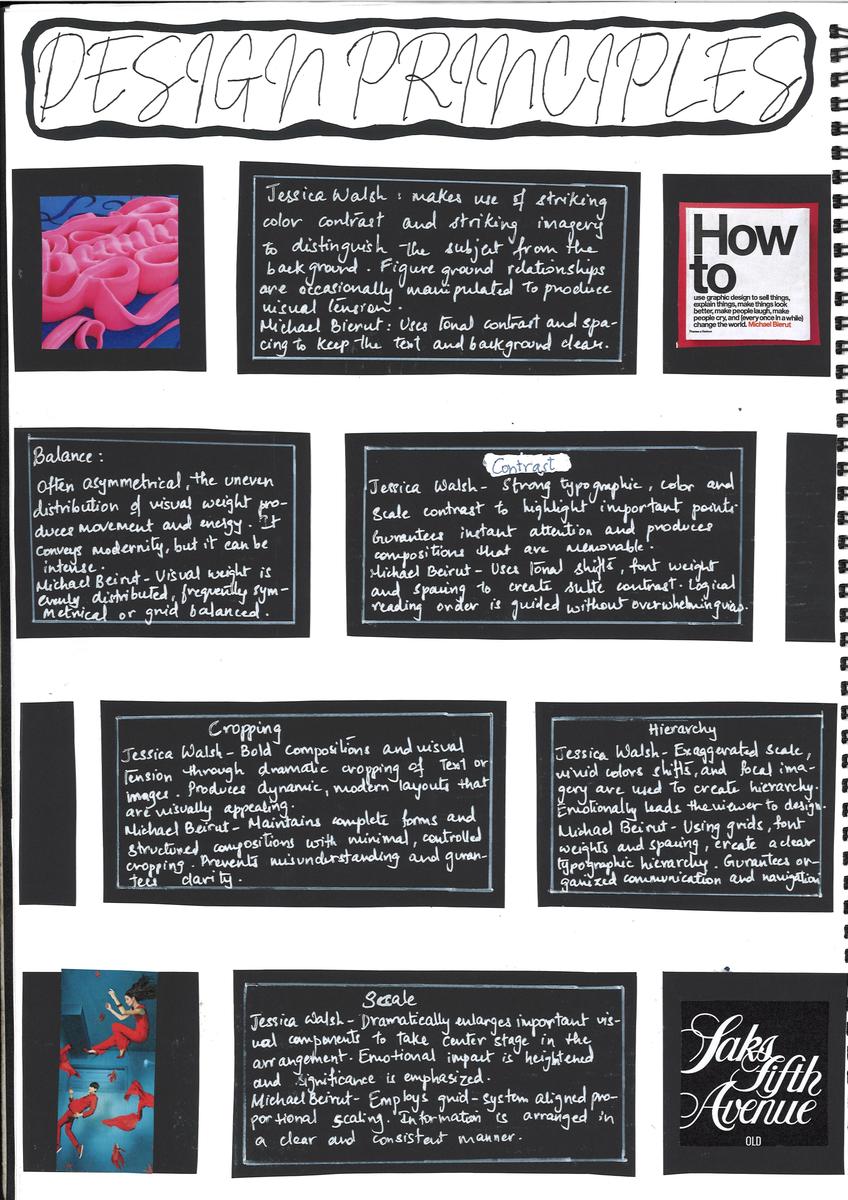 DESIGN PRINCIPLES
Jessica Walsh : makes use of striking
color contrast and striking imagery
to distinguish the subject from the
background. Figure ground relationships
are occasionally manipulated to produce
visual tension.
Michael Bierut : Uses tonal contrast and spa-
cing to keep the text and background clear.
How
to
use graphic design to sell things,
explain things, make things look
better, make people laugh, make
people cry, and (every once in a while)
change the world. Michael Bierut
Thames & Hudson
Balance :
Often asymmetrical, the uneven
distribution of visual weight pro-
duces movement and energy. It
conveys modernity, but it can be
intense.
Michael Beirut - Visual weight is
evenly distributed, frequently sym-
metrical or grid balanced.
Contrast
Jessica Walsh - Strong typographic, color and
scale contrast to highlight important points.
Gurantees instant attention and produces
compositions that are memorable.
Michael Beirut - Uses tonal shifts, font weight
and spacing to create sutle contrast. Logical
reading order is guided without overwhelming
Cropping
Jessica Walsh - Bold compositions and visual
tension through dramatic cropping of Text or
images. Produces dynamic, modern layouts that
are visually appealing.
Michael Beirut - Maintains complete forms and
structured compositions with minimal, controlled
cropping. Prevents misunderstanding and guran-
tees clarity.
Hierarchy
Jessica Walsh - Exaggerated scale,
vivid colors shifts, and focal ima-
gery are used to create hierarchy.
Emotionally leads the viewer to design.
Michael Beirut - Using grids, font
weights and spacing, create a clear
typographic hierarchy. Gurantees or-
ganized communication and navigation
Scale
Jessica Walsh - Dramatically enlarges important vis-
ual components to take center stage in the
arrangement. Emotional impact is heightened
and significance is emphasized.
Michael Beirut - Employs grid-system aligned pro-
portional scaling. Information is arranged in
a clear and consistent manner.
Saks
Fifth
Avenue
OLD